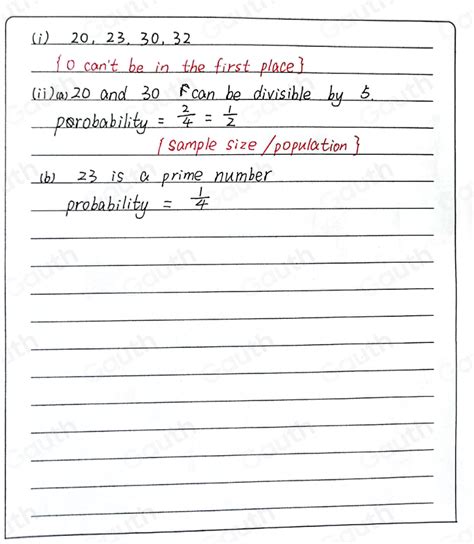 (i) 20, 23, 30, 32
{0 can't be in the first place}
(ii)(a) 20 and 30 can be divisible by 5.
probability = 2/4 = 1/2
{sample size/population}
(b) 23 is a prime number
probability = 1/4